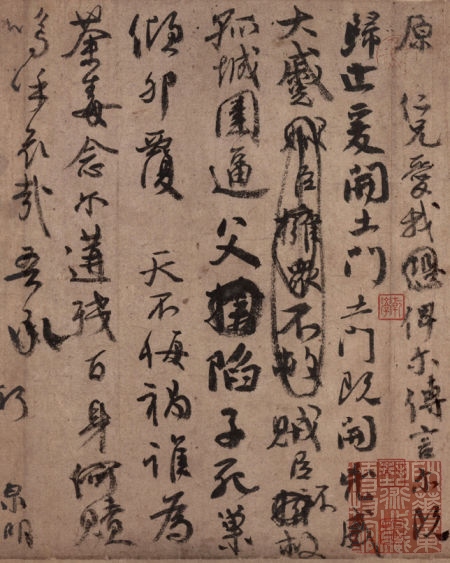 原 仁兄愛我恐俾尔傳言尔既
歸止爰開土門土門既開凶威
大蹙賊臣擁眾不救賊臣不救
孤城圍逼父陷子死巢
傾卵覆 天不悔禍誰為
荼毒念尔遘殘百身何贖
嗚呼哀哉吾承
泉明